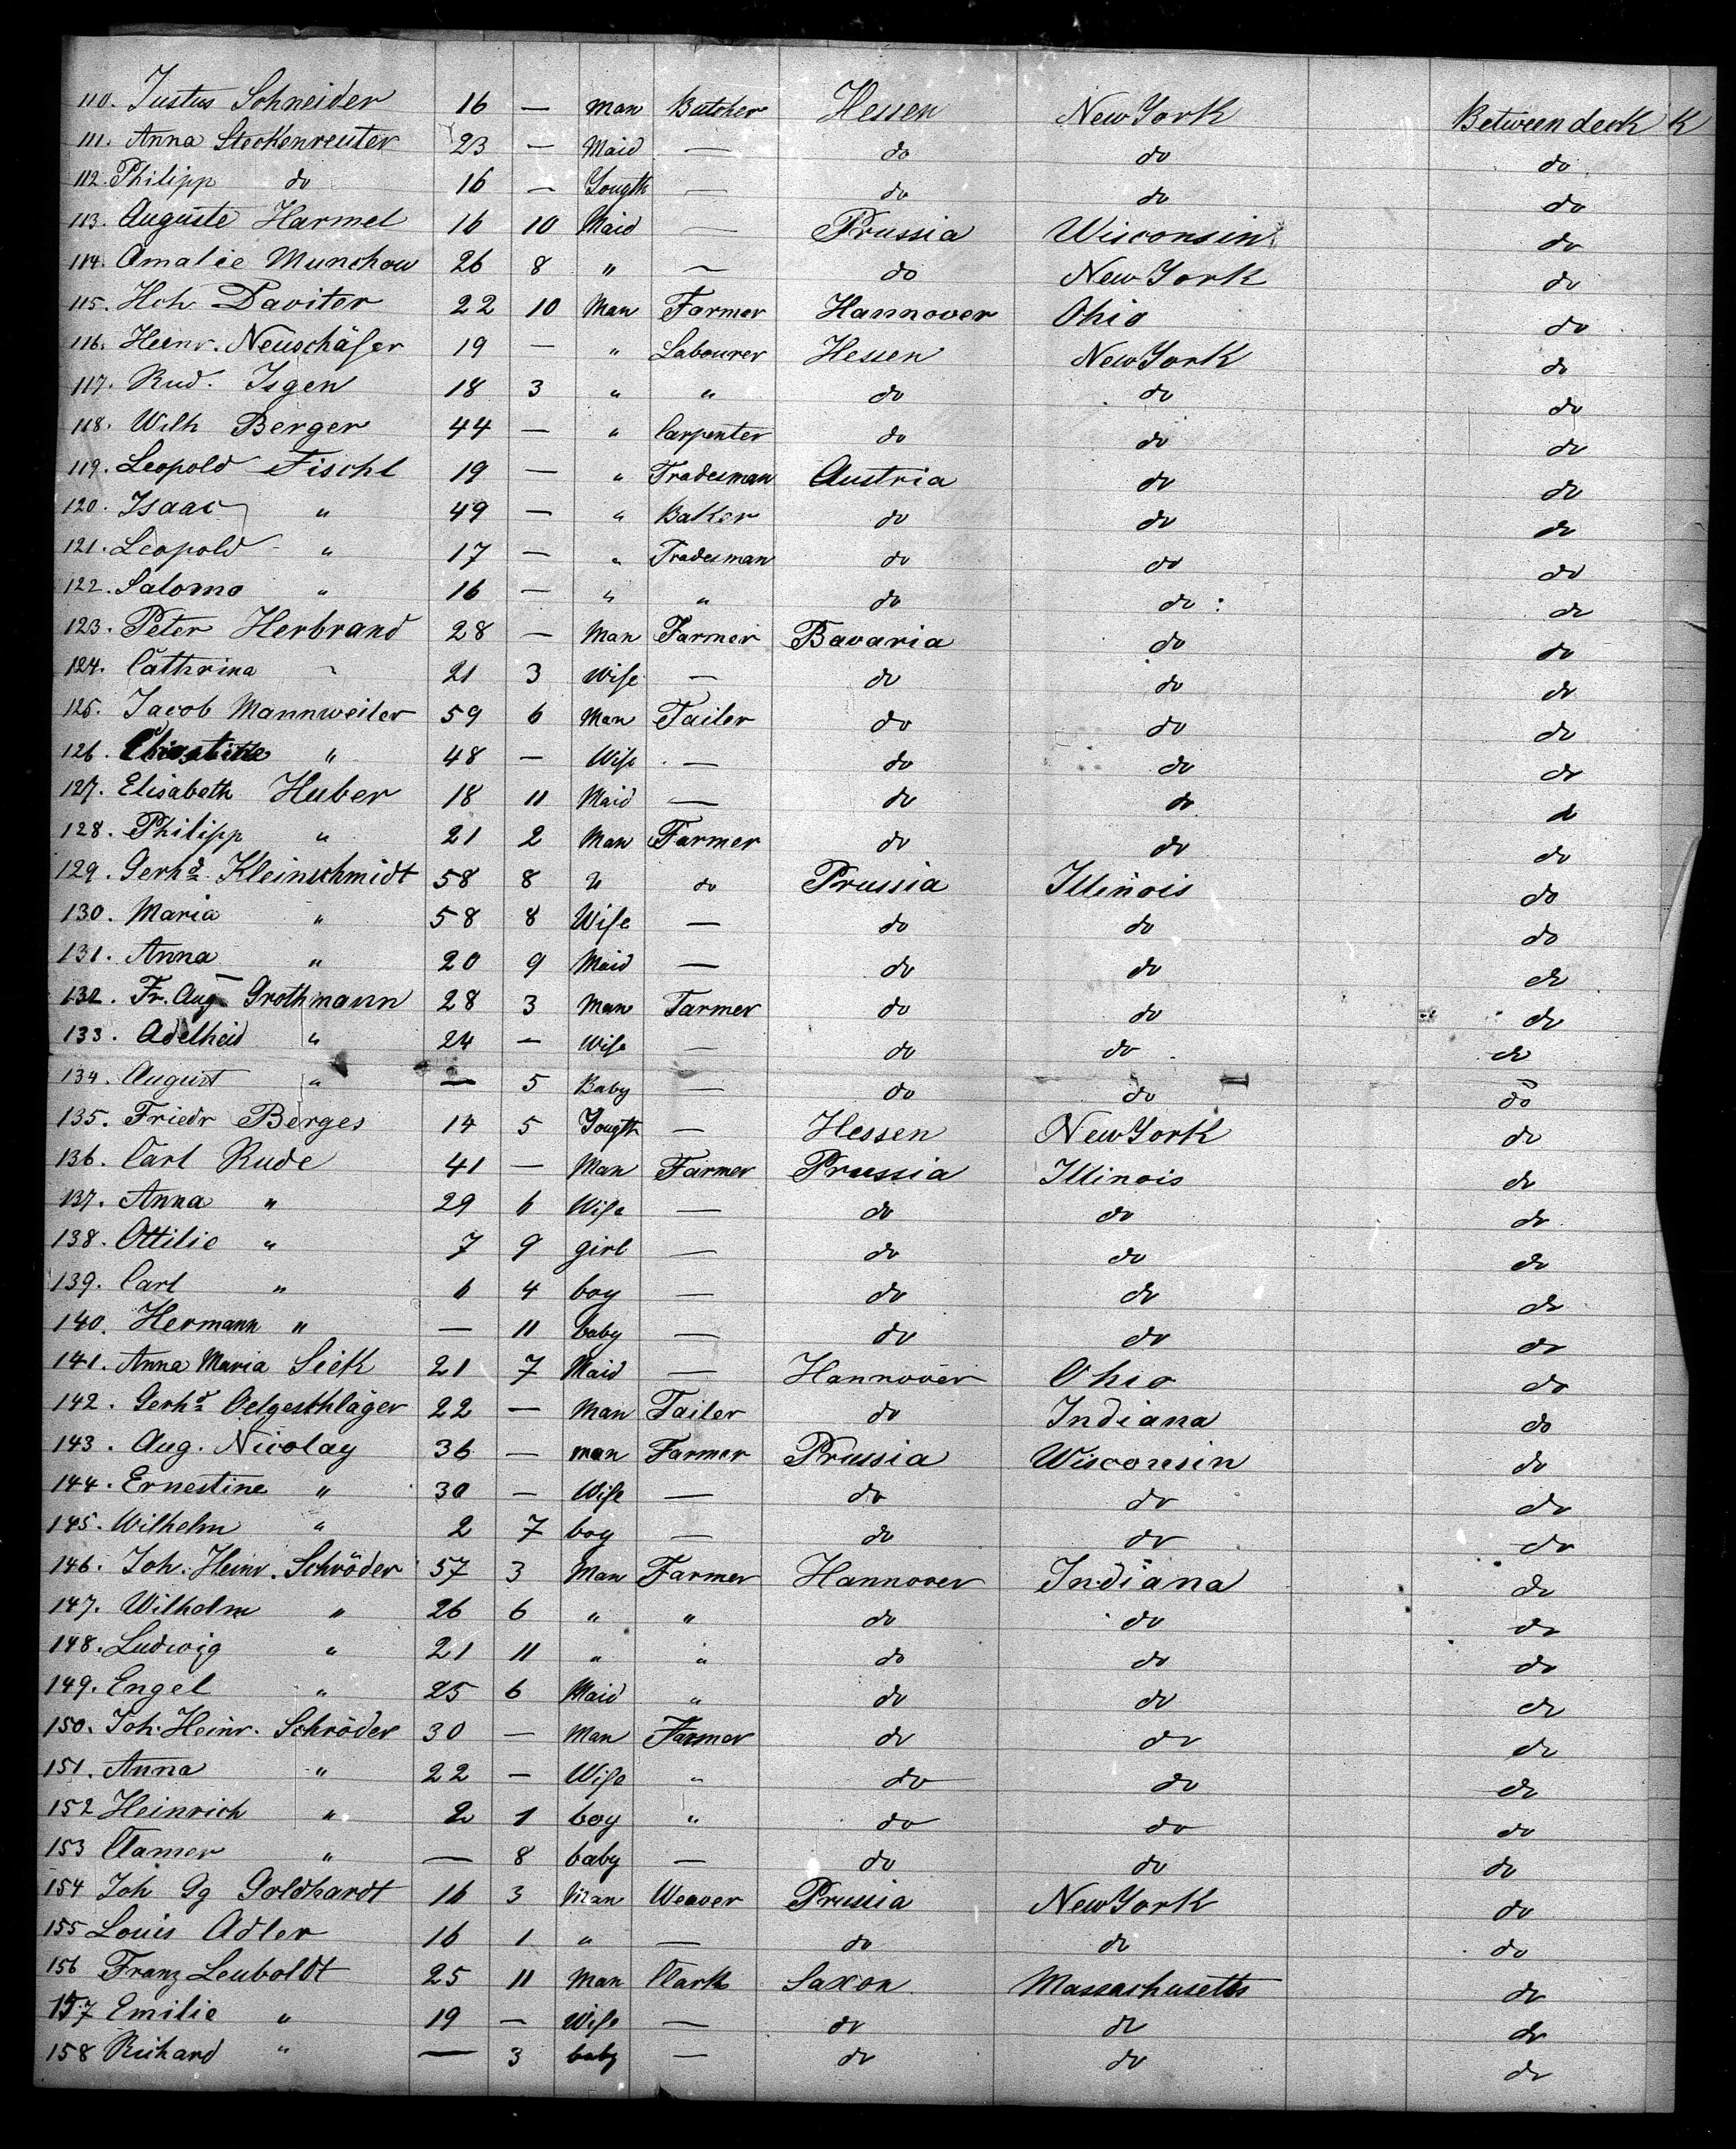 110. Justus Schneider 16 — man Butcher Hessen New York Between deck K
111. Anna Steckenreuter 23 — Maid — do do do
112. Philipp do 16 — Yougth — do do do
113. Auguste Harmel 16 10 Maid — Prussia Wisconsin do
114. Amalie Munchow 26 8 " — do New York do
115. Hch Daviter 22 10 Man Farmer Hannover Ohio do
116. Heinr. Neuschäfer 19 — " Labourer Hessen New York do
117. Rud. Isgen 18 3 " " do do do
118. Wilh Berger 44 — " Carpenter do do do
119. Leopold Fischl 19 — " Tradesman Austria do do
120. Isaac " 49 — " Baker do do do
121. Leopold " 17 — " Tradesman do do do
122. Salomo " 16 — " " do do do
123. Peter Herbrand 28 — Man Farmer Bavaria do do
124. Cathrina " 21 3 Wife — do do do
125. Jacob Mannweiler 59 6 Man Tailer do do do
126. Christine " 48 — Wife — do do do
127. Elisabeth Huber 18 11 Maid — do do do
128. Philipp " 21 2 Man Farmer do do do
129. Gerhd Kleinschmidt 58 8 " do Prussia Illinois do
130. Maria " 58 8 Wife — do do do
131. Anna " 20 9 Maid — do do do
132. Fr. Aug Grothmann 28 3 Man Farmer do do do
133. Adelheid " 24 — Wife — do do do
134. August " — 5 Baby — do do do
135. Friedr Berges 14 5 Yougth — Hessen New York do
136. Carl Rude 41 — Man Farmer Prussia Illinois do
137. Anna " 29 6 Wife — do do do
138. Ottilie " 7 9 girl — do do do
139. Carl " 6 4 boy — do do do
140. Hermann " — 11 baby — do do do
141. Anna Maria Siek 21 7 Maid — Hannover Ohio do
142. Gerhd Oelgeschläger 22 — Man Tailer do Indiana do
143. Aug. Nicolay 36 — man Farmer Prussia Wisconsin do
144. Ernestine " 30 — Wife — do do do
145. Wilhelm " 2 7 boy — do do do
146. Joh. Heinr. Schröder 57 3 Man Farmer Hannover Indiana do
147. Wilhelm " 26 6 " " do do do
148. Ludwig " 21 11 " " do do do
149. Engel " 25 6 Maid " do do do
150. Joh. Heinr. Schröder 30 — Man Farmer do do do
151. Anna " 22 — Wife " do do do
152 Heinrich " 2 1 boy " do do do
153 Clamer " — 8 baby — do do do
154 Joh Gg Goldhardt 16 3 Man Weaver Prussia New York do
155 Louis Adler 16 1 " — do do do
156 Franz Leuboldt 25 11 Man Clark Saxon Massachusetts do
157 Emilie " 19 — Wife — do do do
158 Richard " — 3 baby — do do do